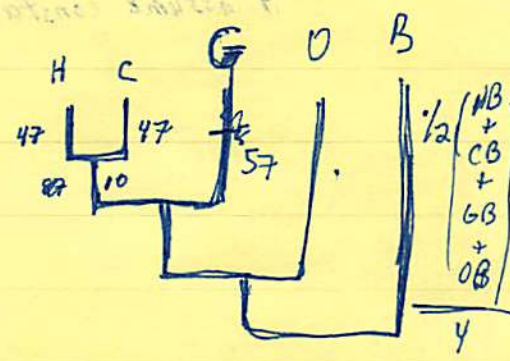 H C G O B
47 47 57
10
1/2 (HB
+
CB
+
GB
+
OB)
4